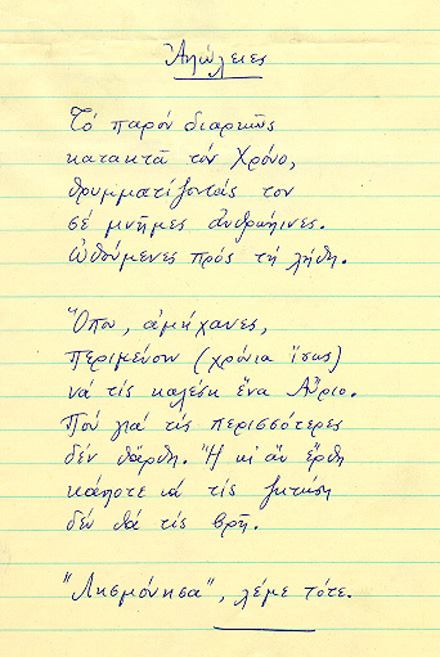 Ἀπώλειες
Τό παρόν διαρκῶς
κατακτᾶ τόν Χρόνο,
θρυμματίζοντάς τον
σέ μνῆμες ἀνθρώπινες.
ὠθούμενες πρός τή λήθη.
Ὅπου, ἀμήχανες,
περιμένουν (χρόνια ἴσως)
νά τίς καλέση ἕνα Αὔριο.
Πού γιά τίς περισσότερες
δέν θἄρθη. Ἤ κι ἄν ἔρθη
κάποτε νά τίς ζητήση
δέν θά τίς βρῆ.
"Λησμόνησα", λέμε τότε.